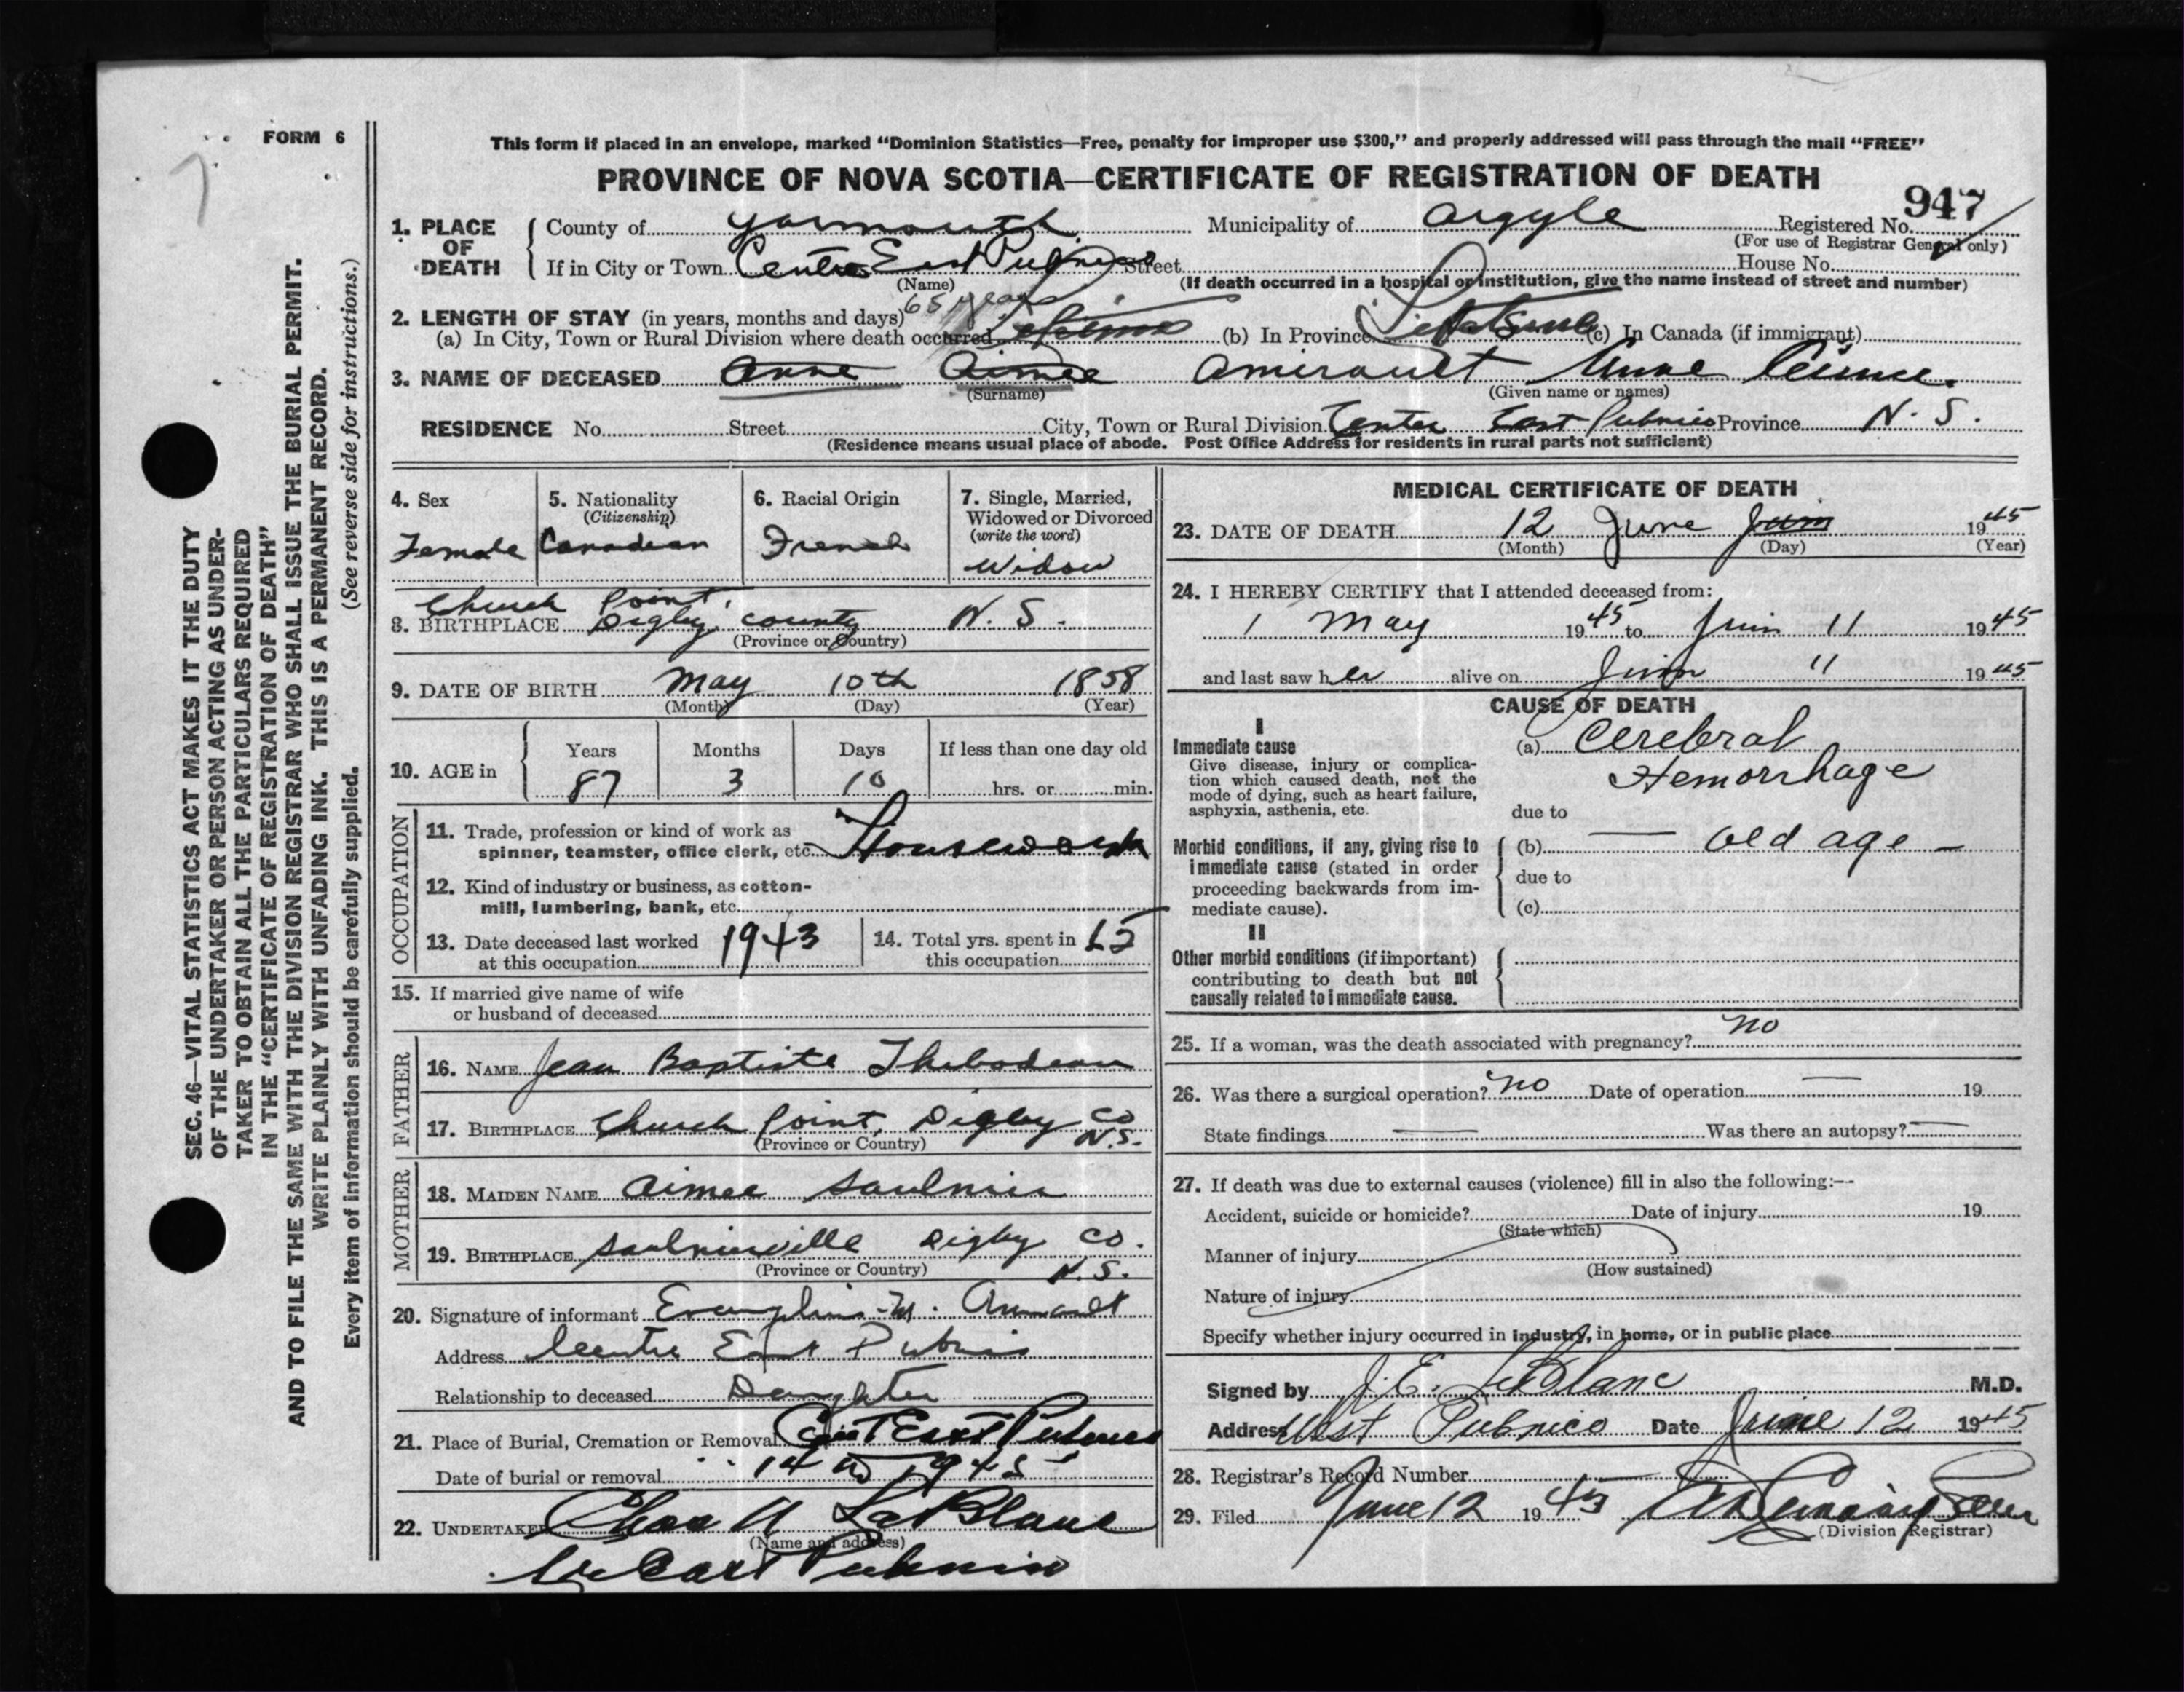 FORM 6
This form if placed in an envelope, marked “Dominion Statistics—Free, penalty for improper use $300,” and properly addressed will pass through the mail “FREE”
PROVINCE OF NOVA SCOTIA—CERTIFICATE OF REGISTRATION OF DEATH
947
1. PLACE OF DEATH
County of Yarmouth Municipality of Argyle Registered No.
(For use of Registrar General only)
If in City or Town Centre East Pubnico Street House No.
(Name) (If death occurred in a hospital or institution, give the name instead of street and number)
65 years
2. LENGTH OF STAY (in years, months and days)
(a) In City, Town or Rural Division where death occurred Lifetime (b) In Province Lifetime (c) In Canada (if immigrant)
3. NAME OF DECEASED Anne Aimee Amirault Anne Aimee.
(Surname) (Given name or names)
RESIDENCE No. Street City, Town or Rural Division Center East Pubnico Province N. S.
(Residence means usual place of abode. Post Office Address for residents in rural parts not sufficient)
4. Sex
Female
5. Nationality
(Citizenship)
Canadian
6. Racial Origin
French
7. Single, Married,
Widowed or Divorced
(write the word)
Widow
Church Point,
8. BIRTHPLACE Digby county N. S.
(Province or Country)
9. DATE OF BIRTH May 10th 1858
(Month) (Day) (Year)
10. AGE in
Years Months Days If less than one day old
87 3 10 hrs. or min.
OCCUPATION
11. Trade, profession or kind of work as
spinner, teamster, office clerk, etc. Housework
12. Kind of industry or business, as cotton-
mill, lumbering, bank, etc.
13. Date deceased last worked
at this occupation 1943
14. Total yrs. spent in
this occupation
15. If married give name of wife
or husband of deceased
FATHER
16. NAME Jean Baptiste Thibodeau
17. BIRTHPLACE Church Point, Digby Co
N.S.
(Province or Country)
MOTHER
18. MAIDEN NAME Aimee Saulnier
19. BIRTHPLACE Saulnierville Digby Co.
(Province or Country) N.S.
20. Signature of informant Evangeline M. Amirault
Address Centre East Pubnico
Relationship to deceased Daughter
21. Place of Burial, Cremation or Removal East Pubnico
Date of burial or removal 14 1945
22. UNDERTAKER Chas LeBlanc
(Name and address)
East Pubnico
MEDICAL CERTIFICATE OF DEATH
23. DATE OF DEATH 12 June 1945
(Month) (Day) (Year)
24. I HEREBY CERTIFY that I attended deceased from:
1 May 1945 to Juin 11 1945
and last saw her alive on Juin 11 1945
CAUSE OF DEATH
I
Immediate cause
Give disease, injury or complica-
tion which caused death, not the
mode of dying, such as heart failure,
asphyxia, asthenia, etc.
(a) Cerebral
Hemorrhage
due to
Morbid conditions, if any, giving rise to
immediate cause (stated in order
proceeding backwards from im-
mediate cause).
(b) — old age —
due to
(c)
II
Other morbid conditions (if important)
contributing to death but not
causally related to immediate cause.
25. If a woman, was the death associated with pregnancy? no
26. Was there a surgical operation? no Date of operation — 19
State findings — Was there an autopsy? —
27. If death was due to external causes (violence) fill in also the following:--
Accident, suicide or homicide? Date of injury 19
(State which)
Manner of injury
(How sustained)
Nature of injury
Specify whether injury occurred in industry, in home, or in public place
Signed by J. E. LeBlanc M.D.
Address West Pubnico Date June 12 1945
28. Registrar's Record Number
29. Filed June 12 1945
(Division Registrar)
SEC. 46—VITAL STATISTICS ACT MAKES IT THE DUTY
OF THE UNDERTAKER OR PERSON ACTING AS UNDER-
TAKER TO OBTAIN ALL THE PARTICULARS REQUIRED
IN THE “CERTIFICATE OF REGISTRATION OF DEATH”
AND TO FILE THE SAME WITH THE DIVISION REGISTRAR WHO SHALL ISSUE THE BURIAL PERMIT.
WRITE PLAINLY WITH UNFADING INK. THIS IS A PERMANENT RECORD.
Every item of information should be carefully supplied. (See reverse side for instructions.)